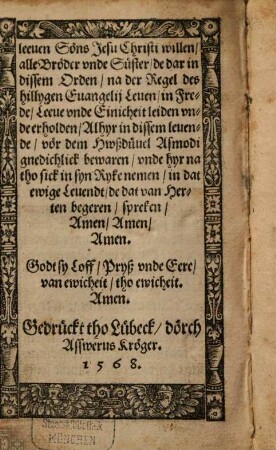 leeuen Söns Jesu Christi willen /
alle Bröder vnde Süster / de dar in
dissem Orden / na der Regel des
hilligen Euangelij Leuen / in Fre-
de / Leeue vnde Einicheit leiden vn-
de erholden / Alhyr in dissem leuen-
de / vör dem Hwßdüuel Asmodi
gnedichlick bewaren / vnde hyr na
tho sick in syn Ryke nemen / in dat
ewige Leuendt / de dat van Her-
ten begeren / spreken /
Amen / Amen /
Amen.
Godt sy Loff / Pryß vnde Eere /
van ewicheit / tho ewicheit.
Amen.
Gedrückt tho Lübeck / dörch
Asswerus Kröger.
1568.
MÜNCHEN